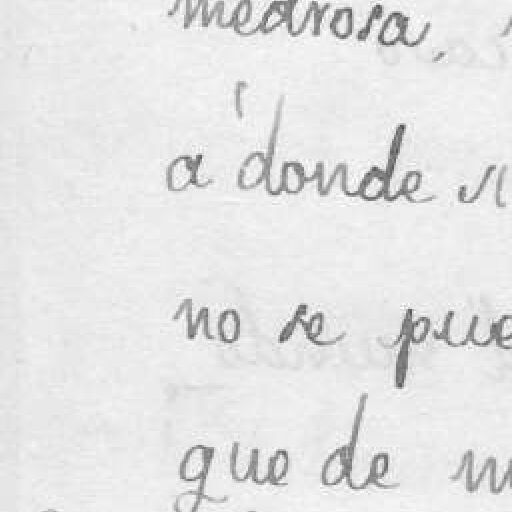 medrosa,
a donde
no se pue
que de